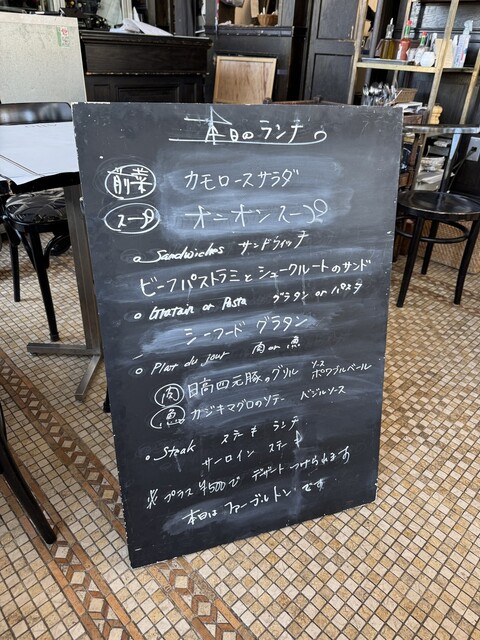 本日のランチ
前菜 カモロースサラダ
スープ オニオンスープ
Sandwiches サンドウィッチ
ビーフパストラミとシュークルートのサンド
Gratain or Pasta グラタン or パスタ
シーフード グラタン
Plat du jour 肉 or 魚
肉 日高四元豚のグリル ソース ポワヴルベール
魚 カジキマグロのソテー バジルソース
Steak ステーキ ランチ
サーロイン ステーキ
※ プラス ¥500で デザート つけられます
本日は ファーブルトン です